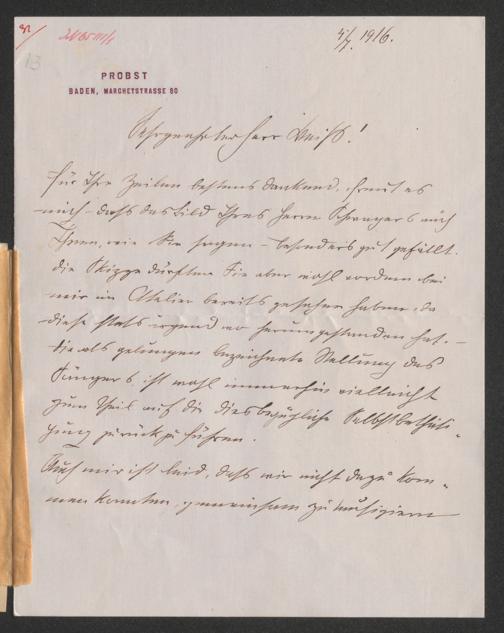 13
4/7. 1916.
PROBST
BADEN, MARCHETSTRASSE 80
Sehrgeehrter Herr Weiss!
Für Ihre Zeilen bestens dankend, freut es
mich – dass das Bild Ihres Herrn Schwagers auch
Ihnen, wie Sie sagen – besonders gut gefällt.
Die Skizze dürften Sie aber wohl vordem bei
mir im Atelier bereits gesehen haben, da
diese stets irgend wo herumgestanden hat. –
Die als gelungen bezeichnete Stellung des
Sängers ist wohl immerhin vielleicht
zum Theil auf die diesbezügliche Selbstbethäti-
gung zurück zu führen.
Auch mir ist leid, dass wir nicht dazu kom-
men konnten, gemeinsam zu musizieren